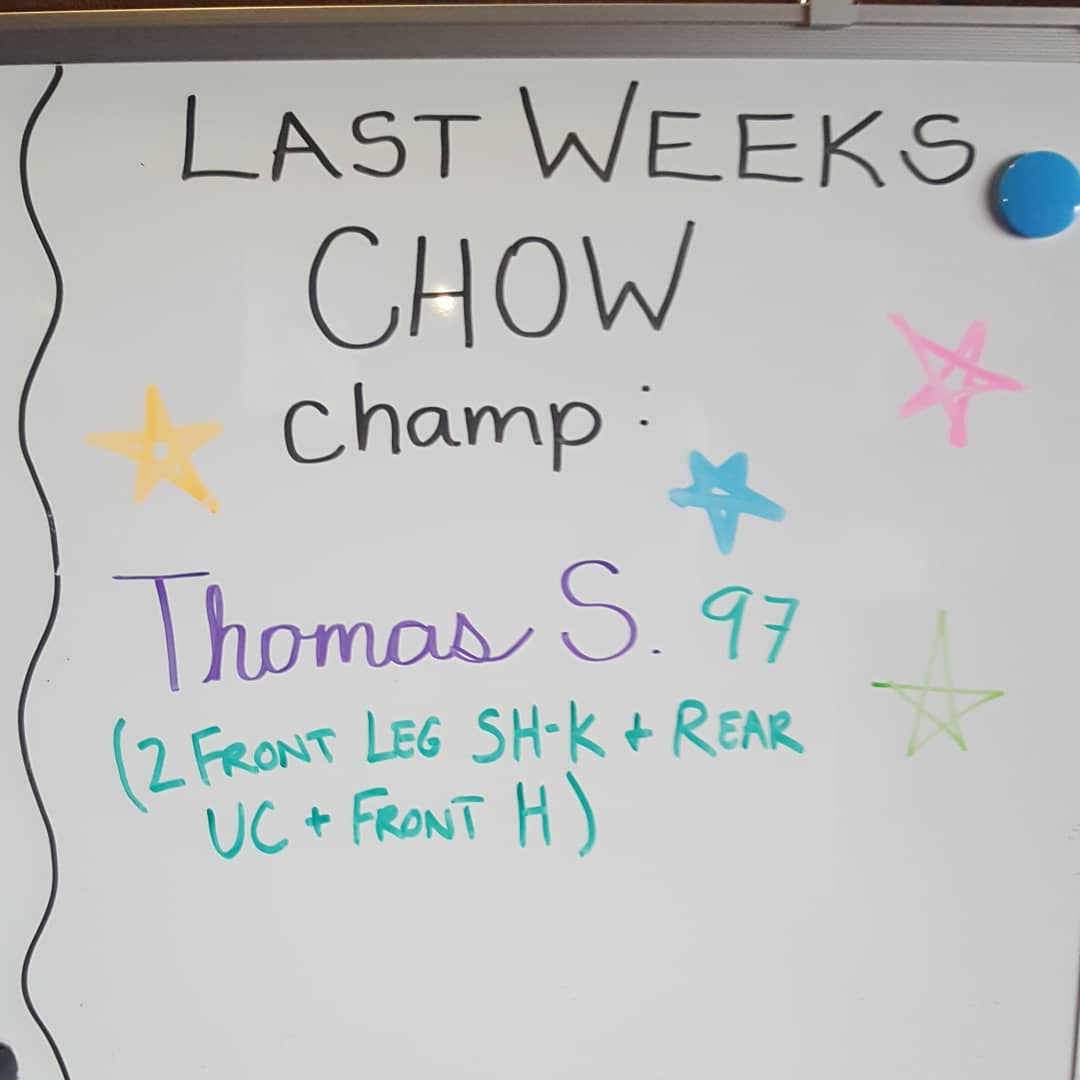 LAST WEEKS
CHOW
champ:
Thomas S. 97
(2 FRONT LEG SH-K + REAR
UC + FRONT H)